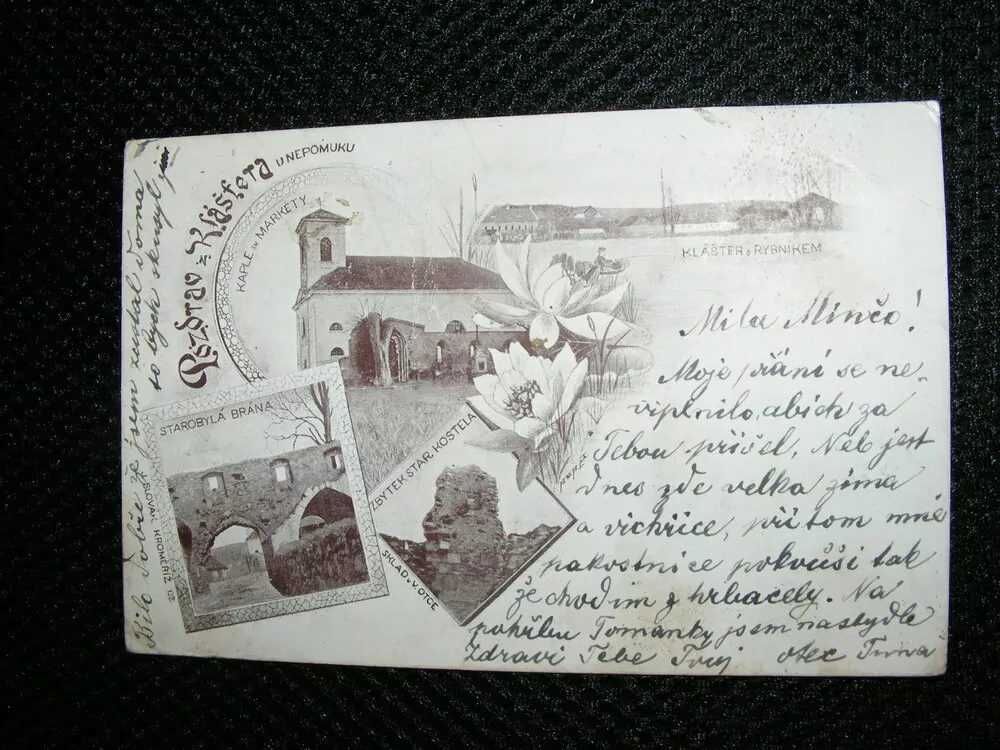 Pozdrav z Kláštera
U NEPOMUKU
KAPLE SV MARKETY
KLÁŠTER S RYBNIKEM
STAROBYLÁ BRANA
ZBYTEK STAR. KOSTELA
SKLAD V. VOTCE
SLOVÁK KROMĚŘÍŽ
Milá Minčo!
Moje přání se ne-
viplnilo, abich za
Tebou přišel, Neb jest
dnes zde velka zima
a vichřice, při tom mně
pakostnice pokouši tak
že chodim z hrbacely. Na
pohřbu Tomanky jsem nastydle
Zdravi Tebe Tvuj otec Tuma
Bilo dobře že jsem zustal doma
to bych skusyl